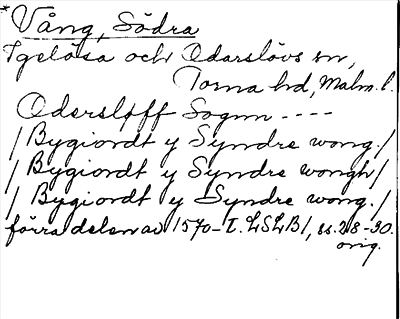 *Vång, Södra
Igelösa och Odarslövs sn,
Torna hd, Malm. l.
Odersløff Sognn ----
/Bygiordt y Syndre wong./
/Bygiordt y Syndre wongh/
/Bygiordt y Syndre wong./
förra delen av 1570-t. LSLB1, ss. 28-30.
orig.